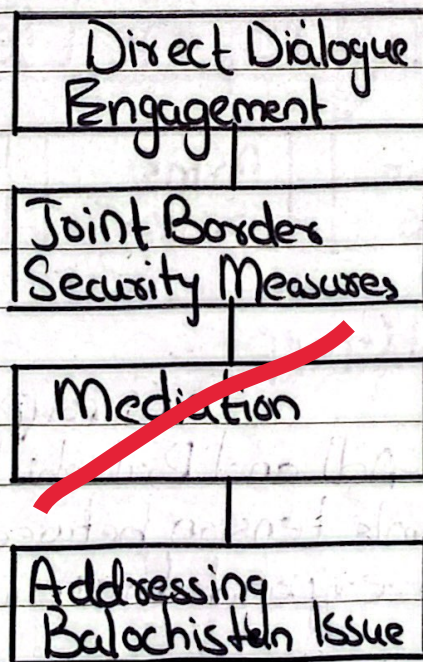 Direct Dialogue
Engagement
Joint Border
Security Measures
Mediation
Addressing
Balochistan Issue